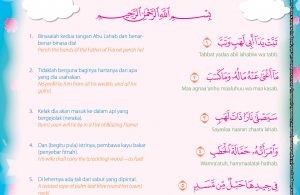 بِسْمِ اللَّهِ الرَّحْمَٰنِ الرَّحِيمِ
1. Binasalah kedua tangan Abu Lahab dan benar-
benar binasa dia!
Perish the hands of the Father of Flame! perish he!
تَبَّتْ يَدَا أَبِي لَهَبٍ وَتَبَّ
Tabbat yadaa abii lahabiw wa tabb.
2. Tidaklah berguna baginya hartanya dan apa
yang dia usahakan.
No profit to him from all his wealth, and all his
gains!
مَا أَغْنَىٰ عَنْهُ مَالُهُ وَمَا كَسَبَ
Maa agnaa 'anhu maaluhuu wa maa kasab.
3. Kelak dia akan masuk ke dalam api yang
bergejolak (neraka).
Burnt soon will he be in a Fire of Blazing Flame!
سَيَصْلَىٰ نَارًا ذَاتَ لَهَبٍ
Sayaslaa naaran zhaata lahab.
4. Dan (begitu pula) istrinya, pembawa kayu bakar
(penyebar fitnah).
His wife shall carry the (crackling) wood - as fuel!
وَامْرَأَتُهُ حَمَّالَةَ الْحَطَبِ
Wamra'atuh, hammaalatal-hathab.
5. Di lehernya ada tali dari sabut yang dipintal.
A twisted rope of palm-leaf fibre round her (own)
neck!
فِي جِيدِهَا حَبْلٌ مِّن مَّسَدٍ